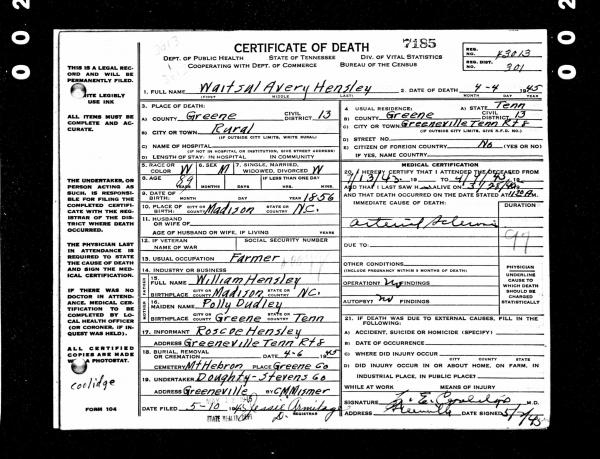 7185
CERTIFICATE OF DEATH
DEPT. OF PUBLIC HEALTH STATE OF TENNESSEE DIV. OF VITAL STATISTICS
COOPERATING WITH DEPT. OF COMMERCE BUREAU OF THE CENSUS
REG. NO. 43013
REG. DIST. 301
1. FULL NAME Waitsal Avery Hensley 2. DATE OF DEATH 4-4 1945
(FIRST) MIDDLE LAST) MONTH DAY YEAR
THIS IS A LEGAL RECORD AND WILL BE PERMANENTLY FILED.
WRITE LEGIBLY USE INK
ALL ITEMS MUST BE COMPLETE AND ACCURATE.
THE UNDERTAKER, OR PERSON ACTING AS SUCH, IS RESPONSIBLE FOR FILING THE COMPLETED CERTIFICATE WITH THE REGISTRAR OF THE DISTRICT WHERE DEATH OCCURRED.
THE PHYSICIAN LAST IN ATTENDANCE IS REQUIRED TO STATE THE CAUSE OF DEATH AND SIGN THE MEDICAL CERTIFICATION.
IF THERE WAS NO DOCTOR IN ATTENDANCE, MEDICAL CERTIFICATION TO BE COMPLETED BY LOCAL HEALTH OFFICER (OR CORONER, IF INQUEST WAS HELD).
ALL CERTIFIED COPIES ARE MADE BY PHOTOSTAT.
coolidge
FORM 104
3. PLACE OF DEATH:
A) COUNTY Greene CIVIL DISTRICT 13
B) CITY OR TOWN Rural
(IF OUTSIDE CITY LIMITS, WRITE RURAL)
C) NAME OF HOSPITAL
(IF NOT IN HOSPITAL OR INSTITUTION, GIVE STREET ADDRESS)
D) LENGTH OF STAY: IN HOSPITAL IN COMMUNITY
5. RACE OR COLOR W 6. SEX M 7. SINGLE, MARRIED, WIDOWED, DIVORCED W
8. AGE 89 YEARS MONTHS DAYS IF LESS THAN ONE DAY HRS. MINS.
9. DATE OF BIRTH: MONTH DAY 1856 YEAR
10. PLACE OF BIRTH: CITY OR COUNTY Madison STATE OR COUNTRY N.C.
11. HUSBAND OR WIFE OF
AGE OF HUSBAND OR WIFE, IF LIVING YEARS
12. IF VETERAN NAME OF WAR SOCIAL SECURITY NUMBER
13. USUAL OCCUPATION Farmer
14. INDUSTRY OR BUSINESS
FATHER 15. FULL NAME William Hensley
BIRTHPLACE CITY OR COUNTY Madison STATE OR COUNTRY N.C.
MOTHER 16. MAIDEN NAME Polly Dudley
BIRTHPLACE CITY OR COUNTY Greene STATE OR COUNTRY Tenn
17. INFORMANT Roscoe Hensley
ADDRESS Greeneville Tenn Rt 8
18. BURIAL, REMOVAL OR CREMATION DATE 4-6 1945
CEMETERY Mt Hebron PLACE Greene Co
19. UNDERTAKER Doughty-Stevens Co
ADDRESS Greeneville BY C M Mismer
DATE FILED 5-10 1945 Jessie Armitage
REGISTRAR
4. USUAL RESIDENCE: A) STATE Tenn
B) COUNTY Greene CIVIL DISTRICT 13
C) CITY OR TOWN Greeneville Tenn Rt 8
(IF OUTSIDE CITY LIMITS, GIVE R.F.D. NO.)
D) STREET NO.
E) CITIZEN OF FOREIGN COUNTRY No (YES OR NO)
IF YES, NAME COUNTRY
MEDICAL CERTIFICATION
20. I HEREBY CERTIFY THAT I ATTENDED THE DECEASED FROM
AND THAT I LAST SAW H ALIVE ON
AND THAT DEATH OCCURRED ON THE DATE STATED AT M.
IMMEDIATE CAUSE OF DEATH: DURATION
97
DUE TO:
OTHER CONDITIONS:
(INCLUDE PREGNANCY WITHIN 3 MONTHS OF DEATH)
OPERATION? No FINDINGS
AUTOPSY? No FINDINGS
PHYSICIAN UNDERLINE CAUSE TO WHICH DEATH SHOULD BE CHARGED STATISTICALLY
21. IF DEATH WAS DUE TO EXTERNAL CAUSES, FILL IN THE FOLLOWING:
A) ACCIDENT, SUICIDE OR HOMICIDE (SPECIFY)
B) DATE OF OCCURRENCE
C) WHERE DID INJURY OCCUR
CITY COUNTY STATE
D) DID INJURY OCCUR IN OR ABOUT HOME, ON FARM, IN INDUSTRIAL PLACE, IN PUBLIC PLACE?
WHILE AT WORK MEANS OF INJURY
SIGNATURE M.D.
ADDRESS DATE SIGNED